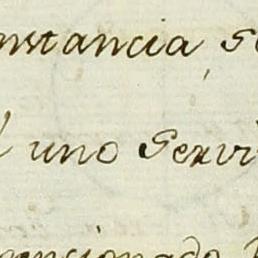 nstancia se
uno Servi
encionado